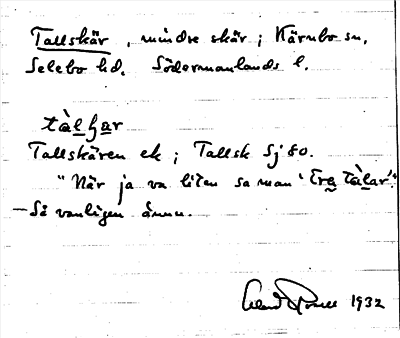 Tallskär, mindre skär; Kärnbo sn,
Selebo hd. Södermanlands l.
tàlʃar
Tallskären ek; Tallsk Sj 80.
"När ja va liten sa man 'Tre tàlar'."
— Så vanligen ännu.
1932